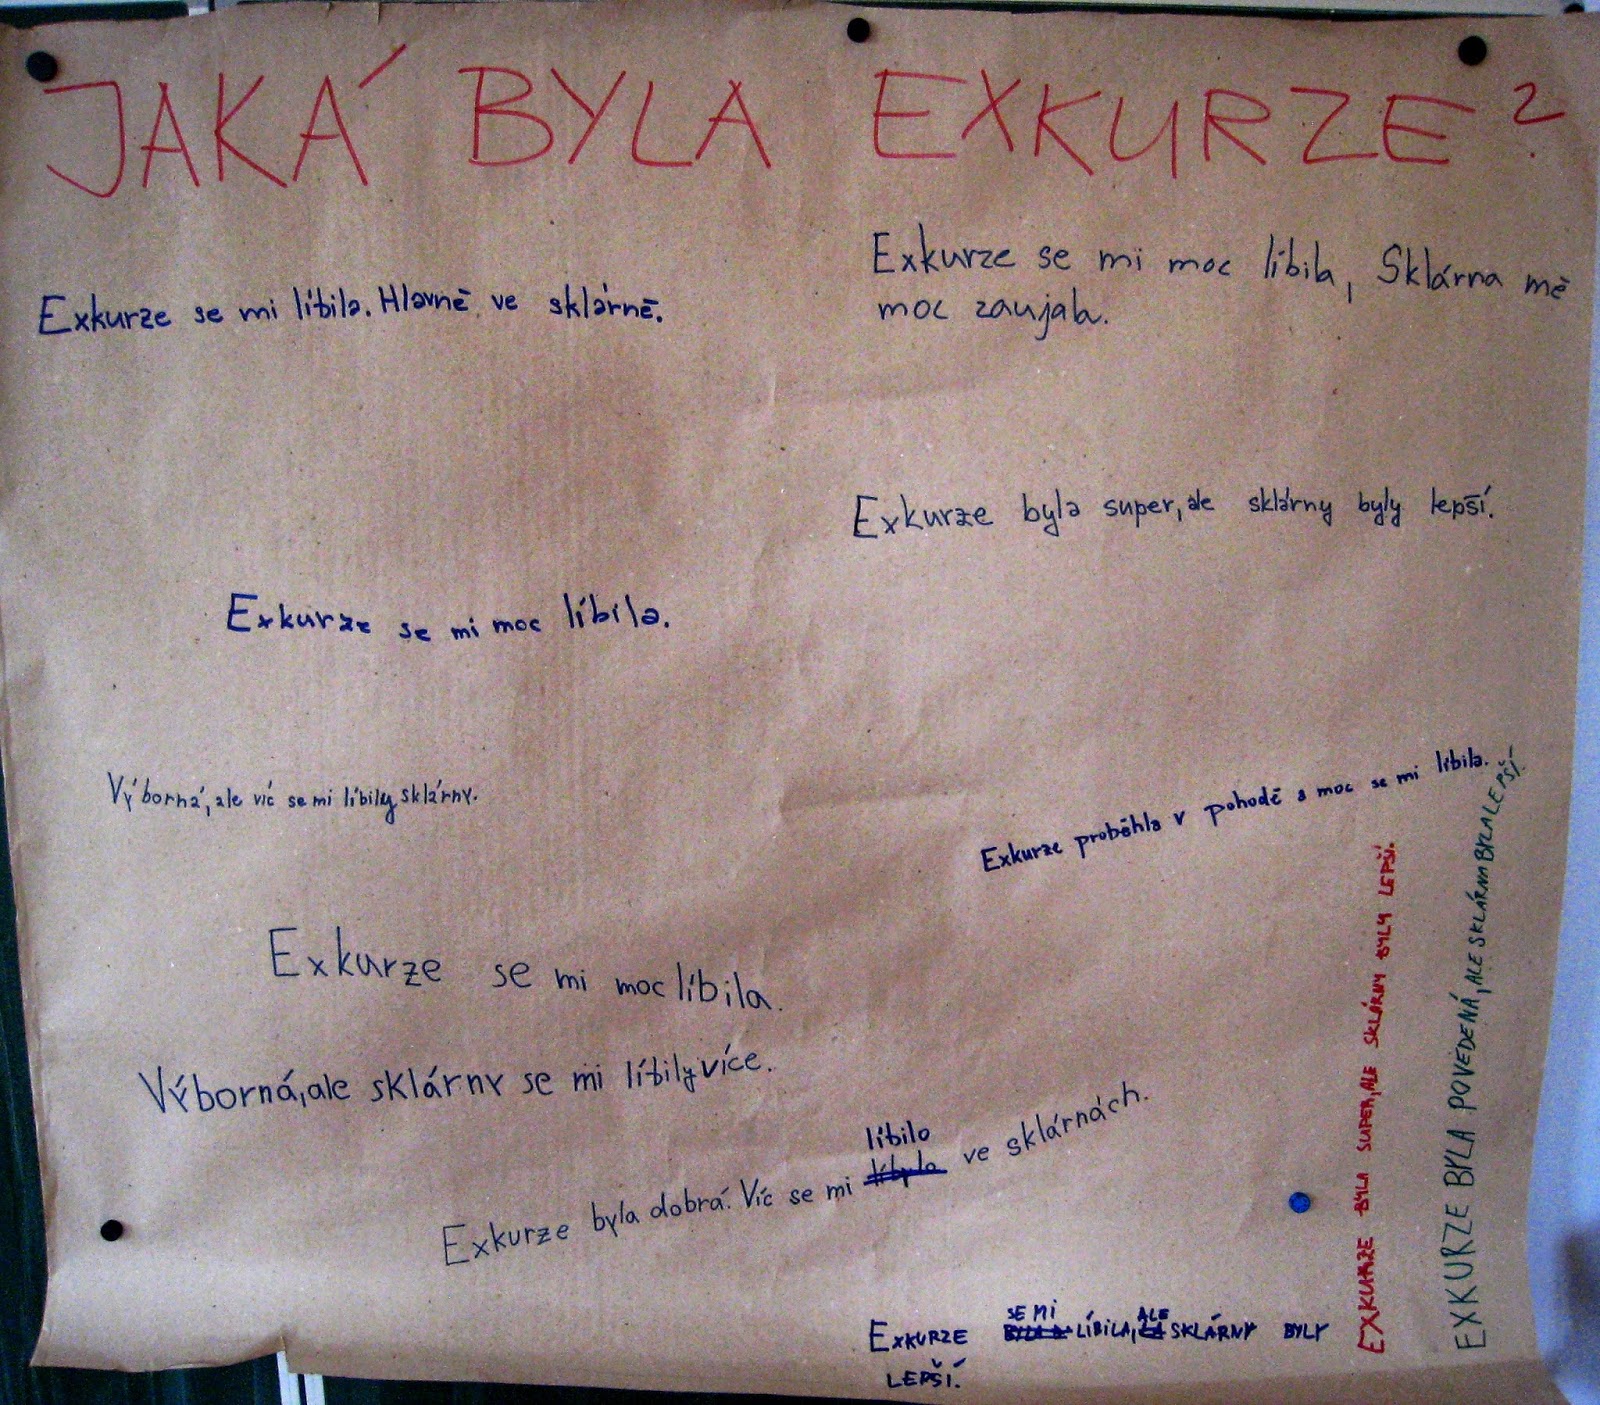 JAKÁ BYLA EXKURZE?
Exkurze se mi moc líbila, Sklárna mě
moc zaujala.
Exkurze se mi líbila. Hlavně ve sklárně.
Exkurze byla super, ale sklárny byly lepší.
Exkurze se mi moc líbila.
Výborná, ale víc se mi líbily sklárny.
Exkurze proběhla v pohodě a moc se mi líbila.
Exkurze se mi moc líbila.
Výborná, ale sklárny se mi líbily více.
líbilo
Exkurze byla dobrá. Víc se mi ve sklárnách.
SE MI ALE
EXKURZE LÍBILA, SKLÁRNY BYLY
LEPŠÍ.
EXKURZE BYLA SUPER, ALE SKLÁRNY BYLY LEPŠÍ.
EXKURZE BYLA POVEDENÁ, ALE SKLÁRNA BYLA LEPŠÍ.